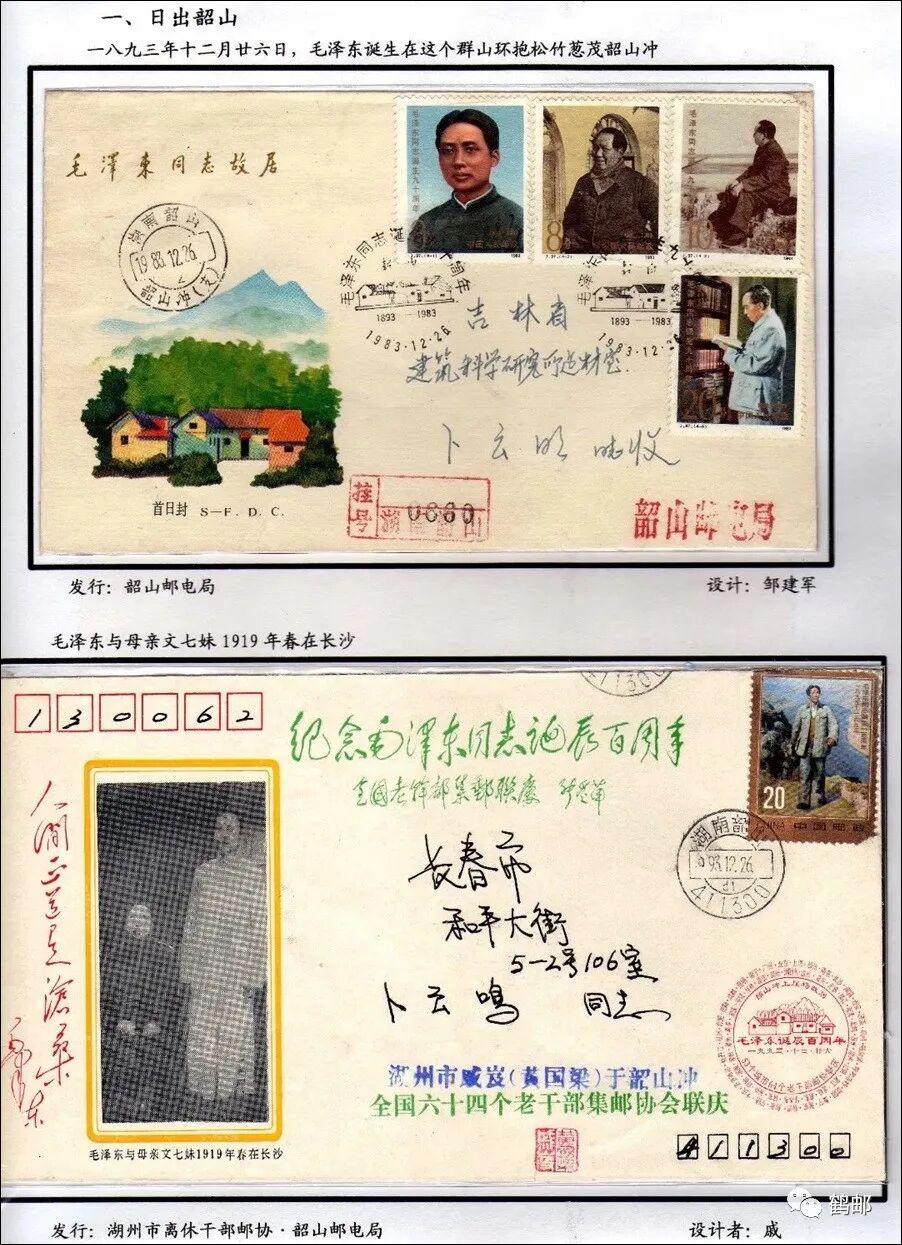 一、日出韶山
一八九三年十二月廿六日，毛泽东诞生在这个群山环抱松竹葱茂韶山冲
毛澤東同志故居
湖南韶山
1983.12.26
韶山冲(支)
毛泽东同志诞生九十周年
8分
10
20
J.97.(4-2)
1983
1893—1983
1983.12.26
1893—1983
1983.12.26
吉林省
建筑科学研究所建材室
卜云鸣 收
首日封 S—F.D.C.
挂号
湖南韶山
0660
韶山邮电局
发行：韶山邮电局
设计：邹建军
毛泽东与母亲文七妹1919年春在长沙
130062
411300
纪念毛泽东同志诞辰百周年
全國老幹部集郵聯慶
20
中国邮政
湖南韶
93.12.26
411300
人间正道是沧桑
毛泽东
长春市
和平大街
5-2号106室
卜云鸣 同志
韶山冲上屋场故居
毛泽东诞辰百周年
一九九三·十二·廿六
湖州市戚岌(黄国梁)于韶山冲
全国六十四个老干部集邮协会联庆
411300
毛泽东与母亲文七妹1919年春在长沙
发行：湖州市离休干部邮协·韶山邮电局
设计者：戚
鹤邮